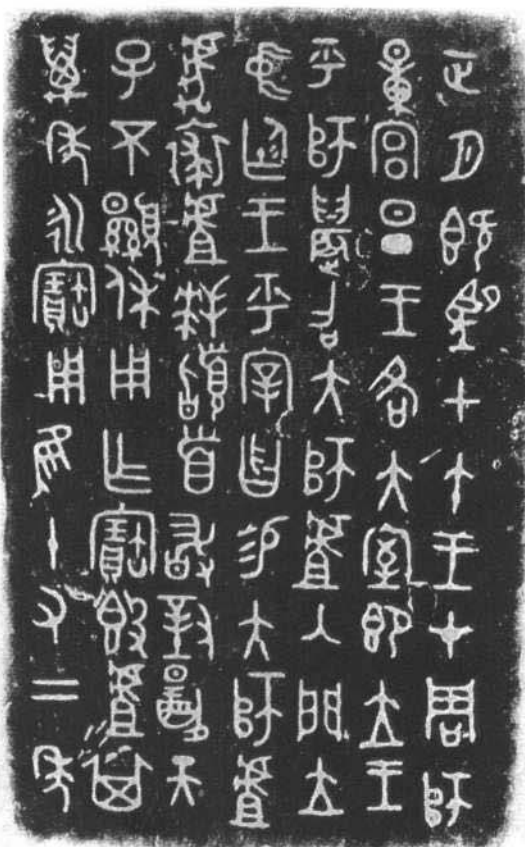 正月既望甲午王才周師
量宮旦王各大室即立王
乎師晨召大師虘入門立
中廷王乎宰曶易大師虘
虎裘虘拜稽首敢對揚天
子不顯休用乍寶簋虘其
萬年永寶用隹十又二年